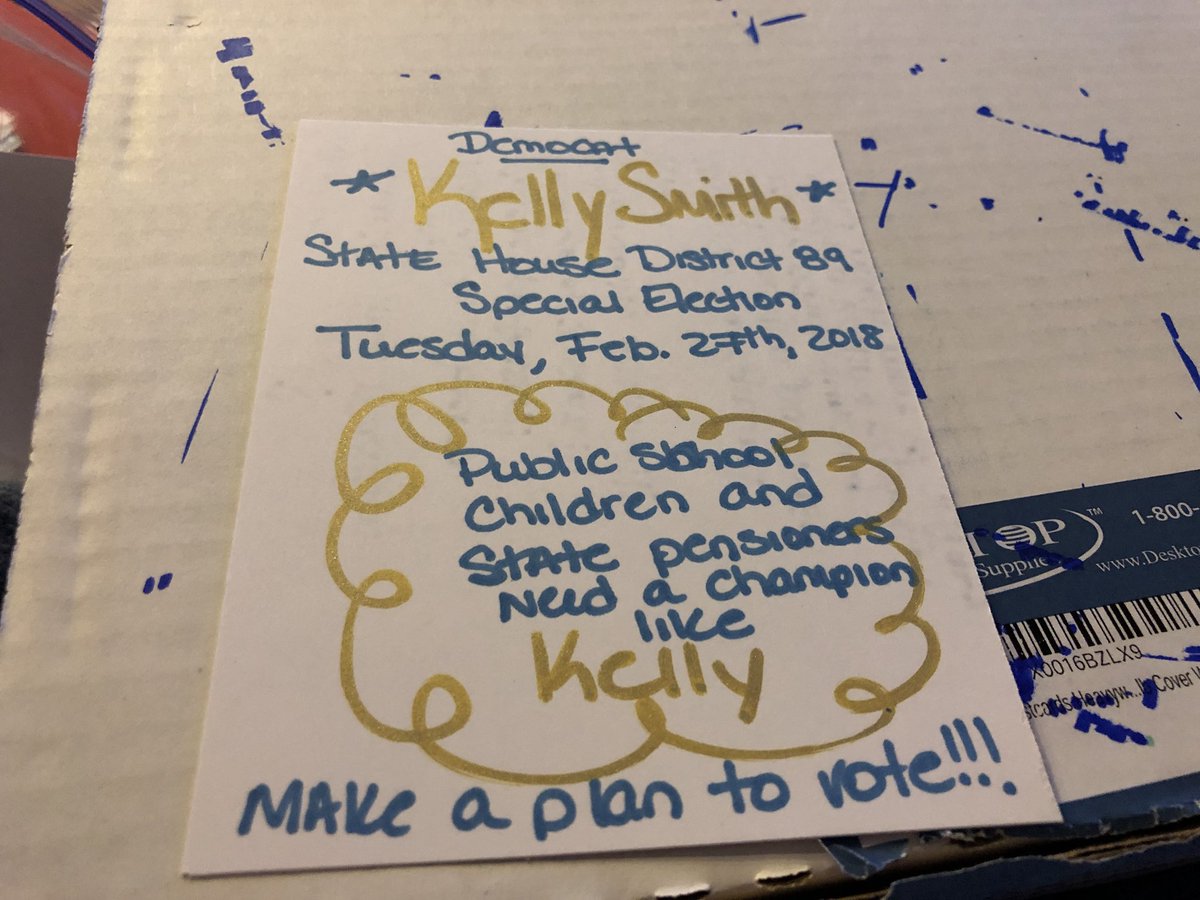 Democrat
Kelly Smith
STATE House District 89
Special Election
Tuesday, Feb. 27th, 2018
Public school
Children and
STATE pensioners
Need a champion
like
Kelly
MAKe a plan to vote!!!
TOP™
Supplies
1-800-
www.Deskto
X0016BZLX9
stcards Heavyw...lb Cover